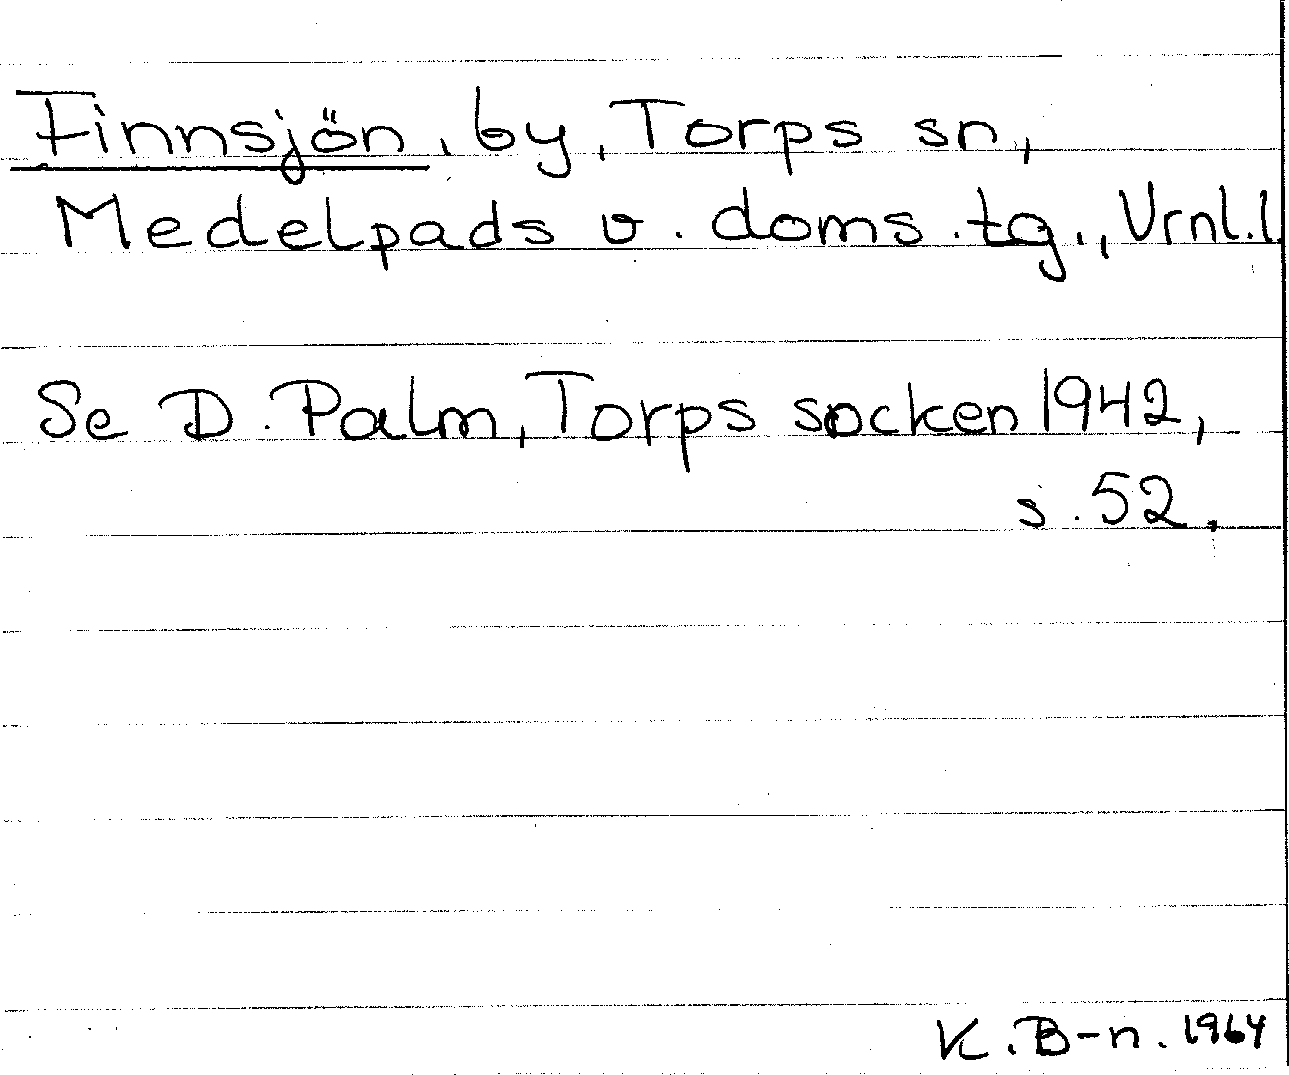 Finnsjön, by, Torps sn,
Medelpads v. doms. tg., Vrnl. l
Se D. Palm, Torps socken 1942,
s. 52.
K. B-n. 1964